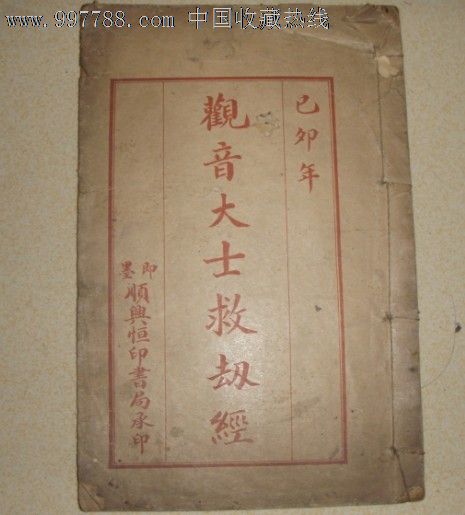 www.997788.com 中国收藏热线
己卯年
觀音大士救劫經
即墨
順興恒印書局承印